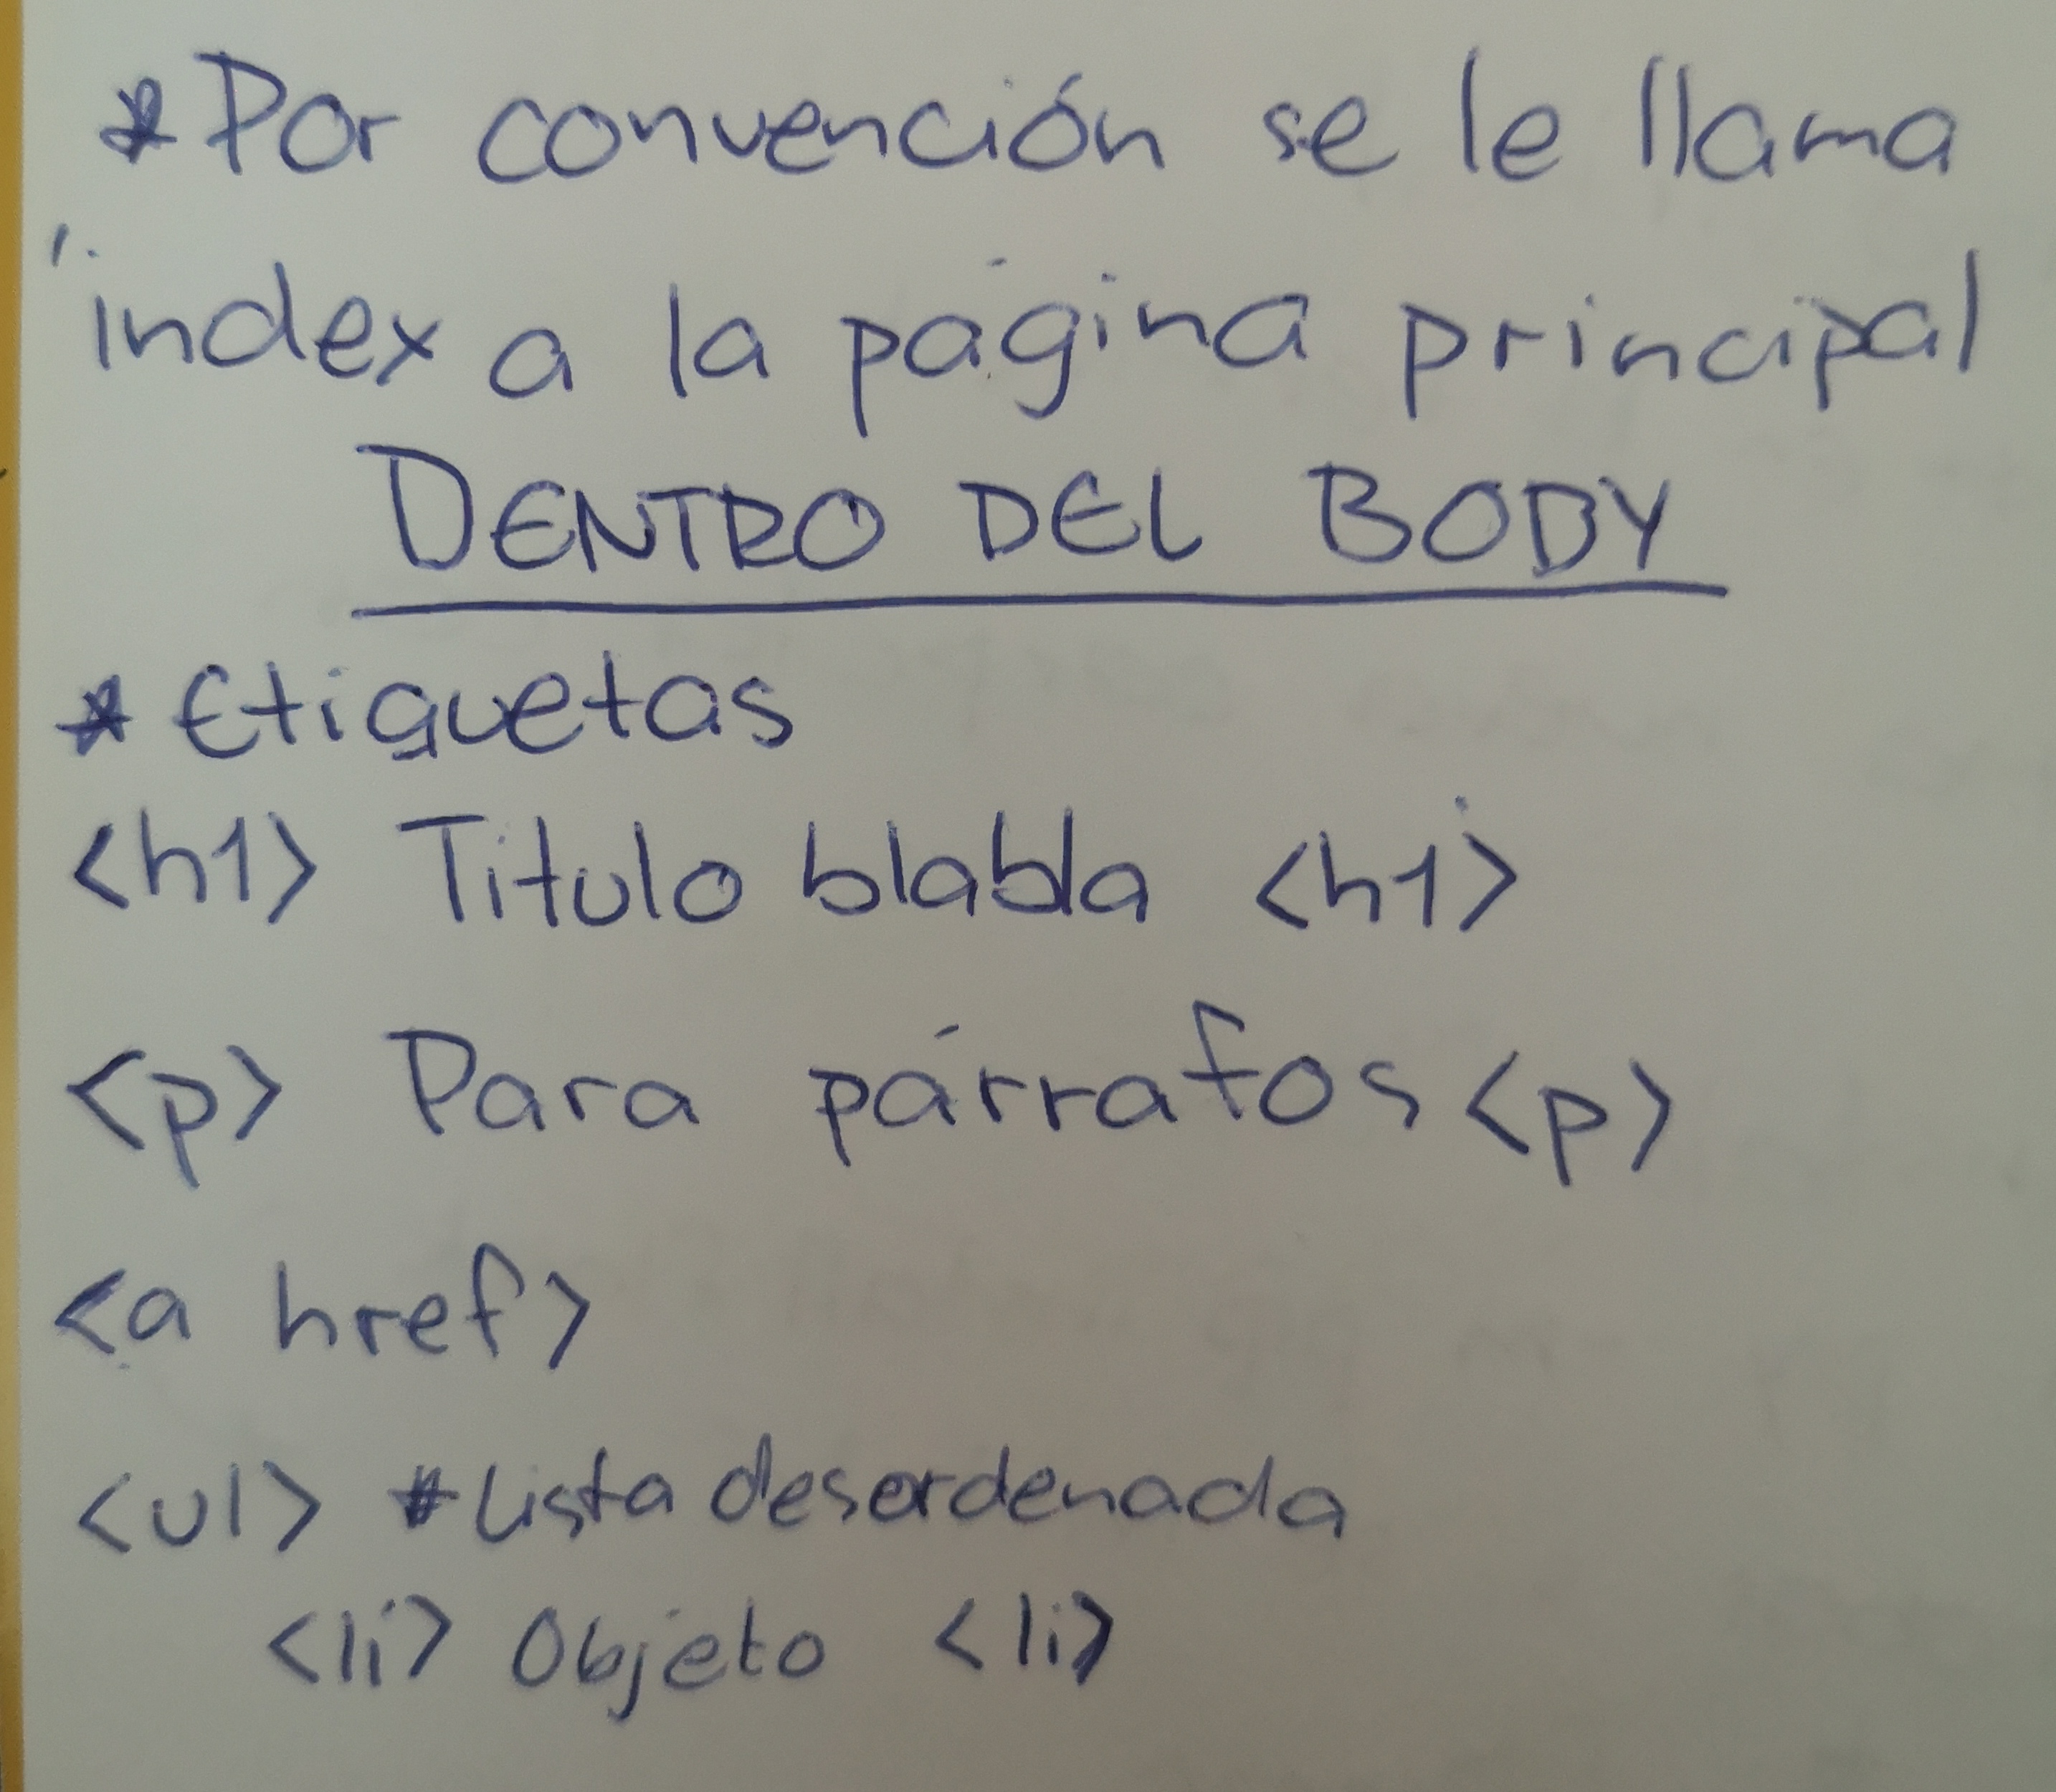 *Por convención se le llama
index a la página principal
DENTRO DEL BODY
* Etiquetas
<h1> Titulo blabla <h1>
<p> Para párrafos <p>
<a href>
<ul> *Lista desordenada
<li> Objeto <li>